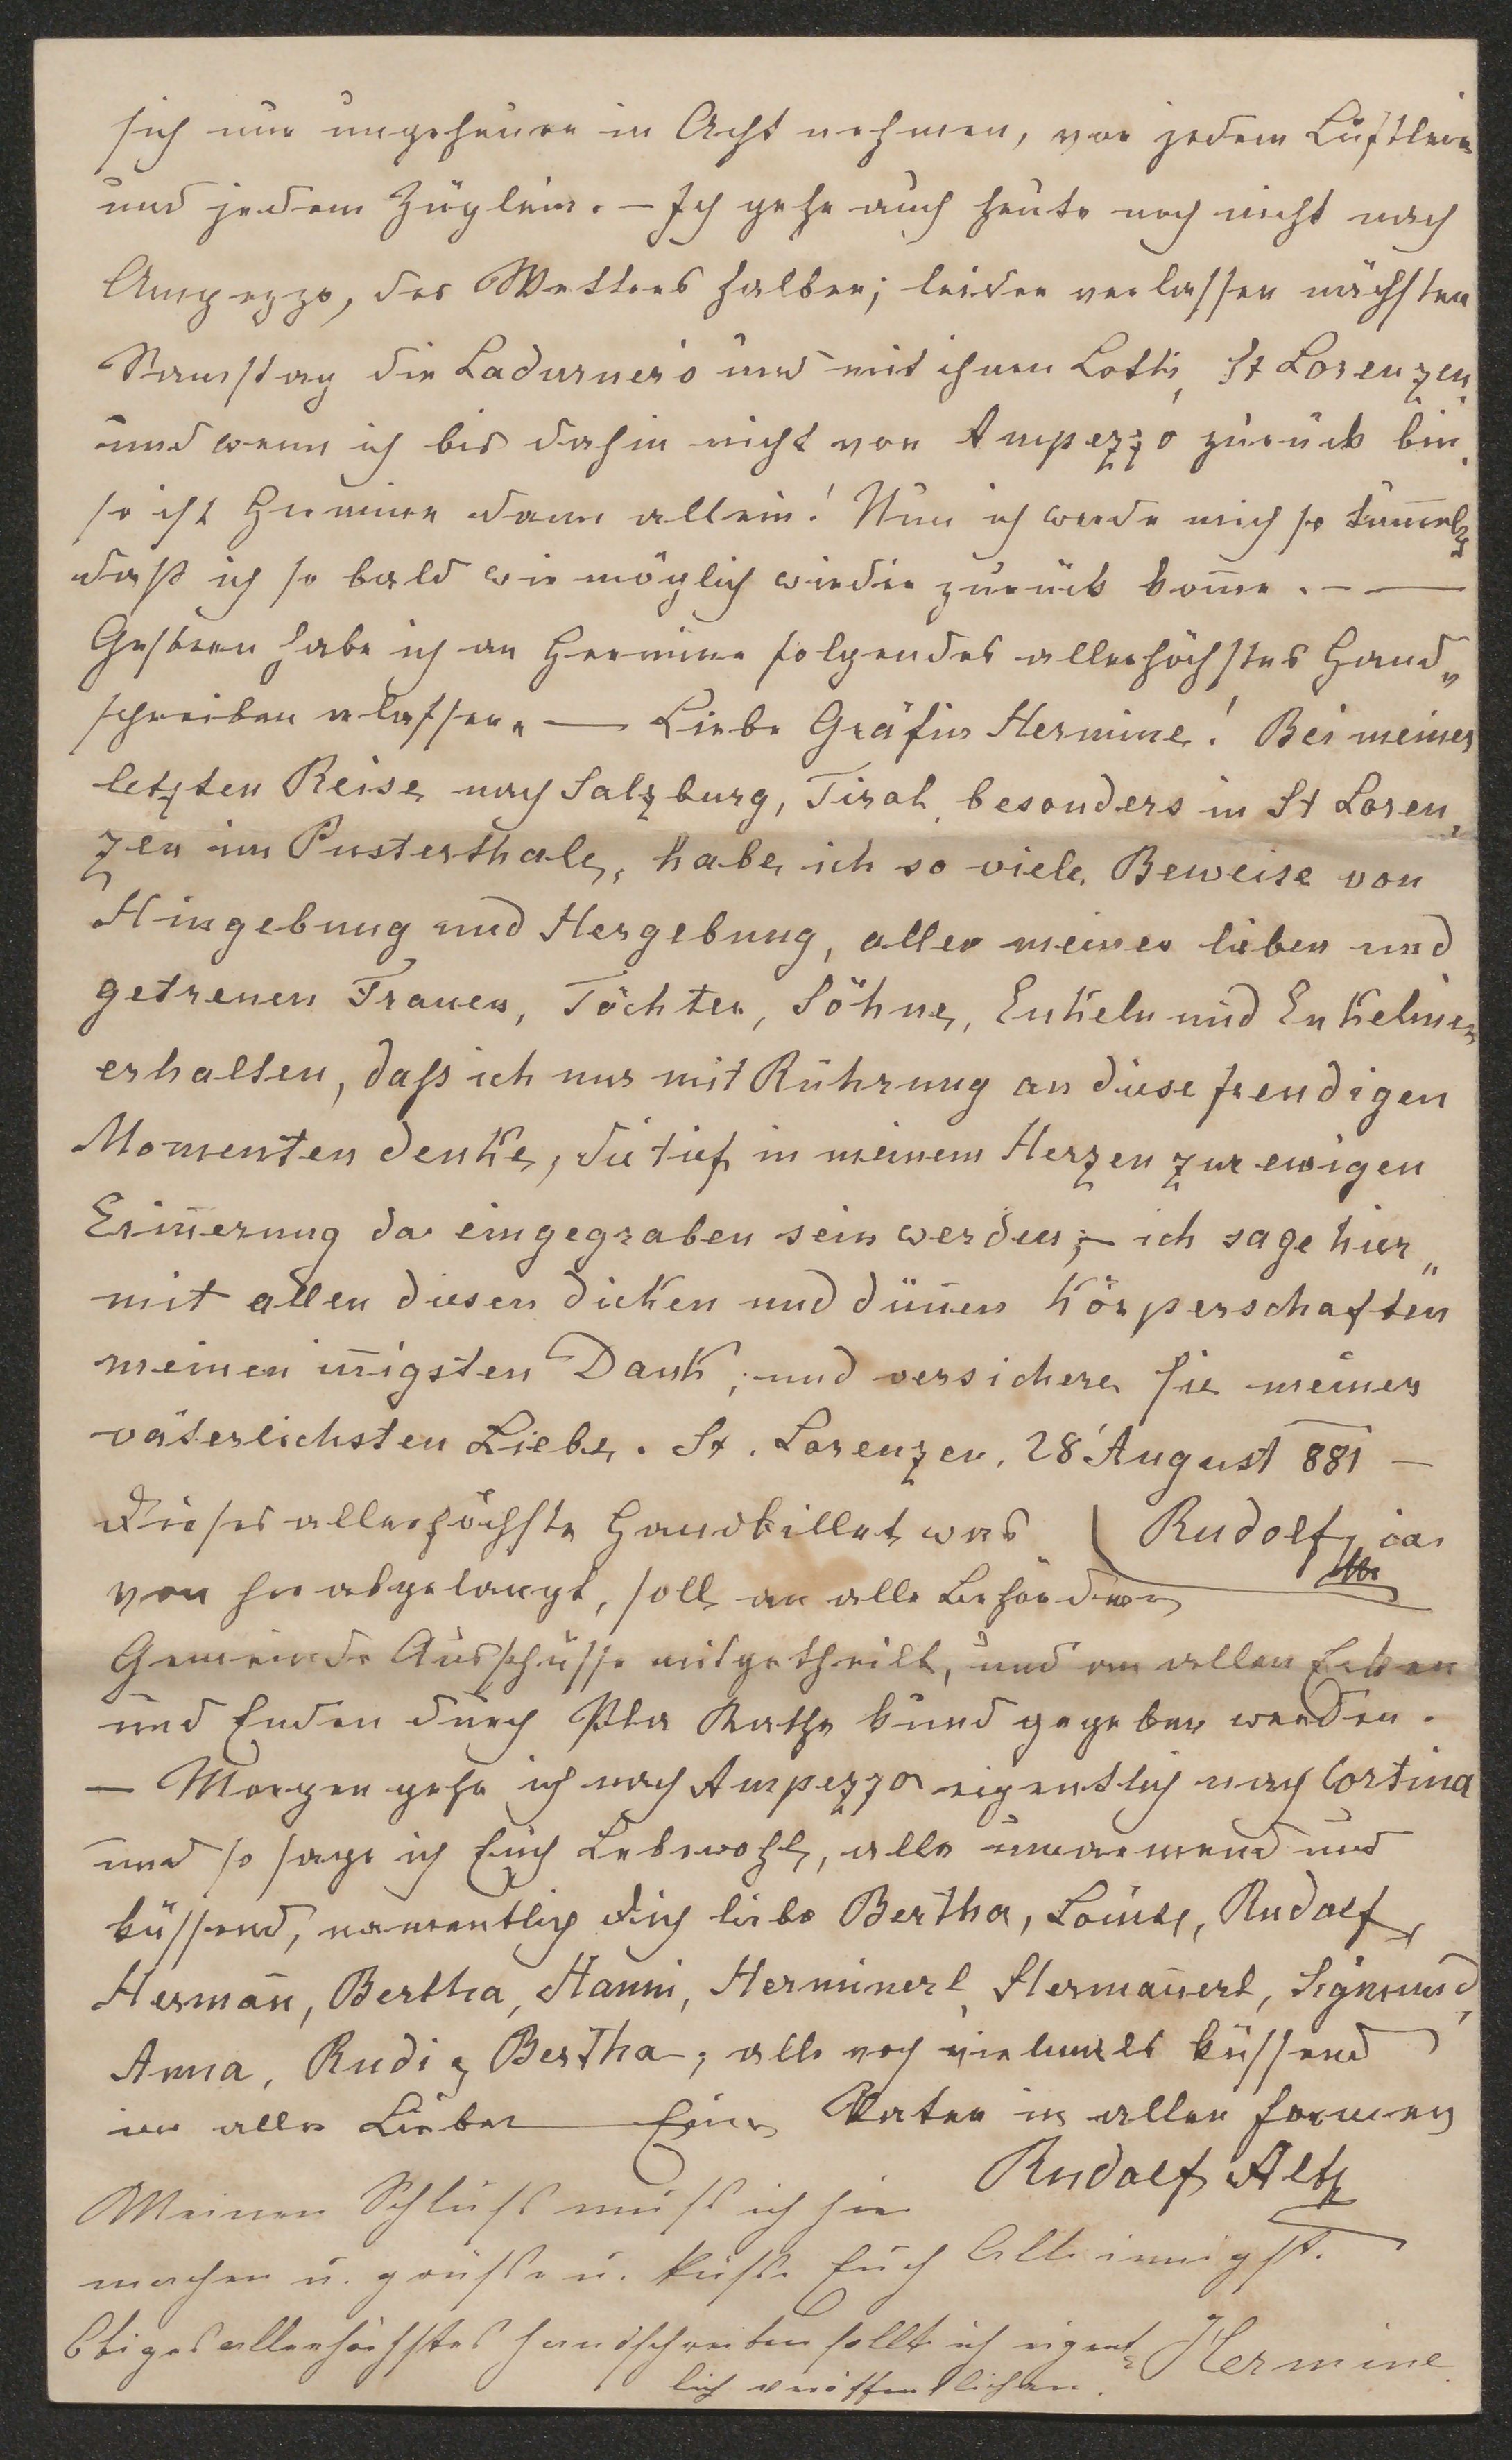 sich nur ungeheuer in Acht nehmen, vor jedem Lüftlein
und jedem Züglein. – Ich gehe auch heute noch nicht nach
Ampezzo, des Wetters halber; leider verlassen nächsten
Samstag die Ladurner's und mit ihnen Lotti, St Lorenzen,
und wenn ich bis dahin nicht von Ampezzo zurück bin,
so ist Hermine dann allein! Nun ich werde mich so tum̄eln
daß ich so bald wie möglich wieder zurück kom̄e. – —
Gestern habe ich an Hermine folgendes allerhöchstes Hand„
schreiben erlassen. — Liebe Gräfin Hermine! Bei meiner
letzten Reise nach Salzburg, Tirol, besonders in St Loren„
zen im Pusterthale, habe ich so viele Beweise von
Hingebung und Hergebung, aller meiner lieben und
getreuen Frauen, Töchter, Söhne, Enkeln und Enkelinen
erhalten, daß ich nur mit Rührung an diese freudigen
Momenten denke, die tief in meinem Herzen zur ewigen
Erin̄erung da eingegraben sein werden; – ich sage hier„
mit allen diesen dicken und dün̄en Körperschaften
meinen in̄igsten Dank, und versichere Sie meiner
väterlichsten Liebe. St. Lorenzen, 28 August 881 –
Dieses allerhöchste Handbillet was Rudolf
von hier abgelangt, soll an alle Behörden
Gemeinde Ausschüsse mitgetheilt, und an allen Ecken
und Enden durch kund gegeben werden.
— Morgen gehe ich nach Ampezzo eigentlich nach Cortina
und so sage ich Euch Lebewohl, alle umarmend und
küssend, namentlich Dich liebe Bertha, Louise, Rudolf,
Herman̄, Bertha, Hanni, Herminerl, Herman̄erl, Sigmund,
Anna, Rudi, Bertha; alle noch vielmals küssend
in aller Liebe — Euer Vater in allen Formen
Rudolf Alt
Meinen Schluß muß ich hier
machen u. grüße u. küße Euch Alle innigst.
Obiges allerhöchstes Handschreiben sollte ich eigent„ Hermine
lich veröffentlichen.